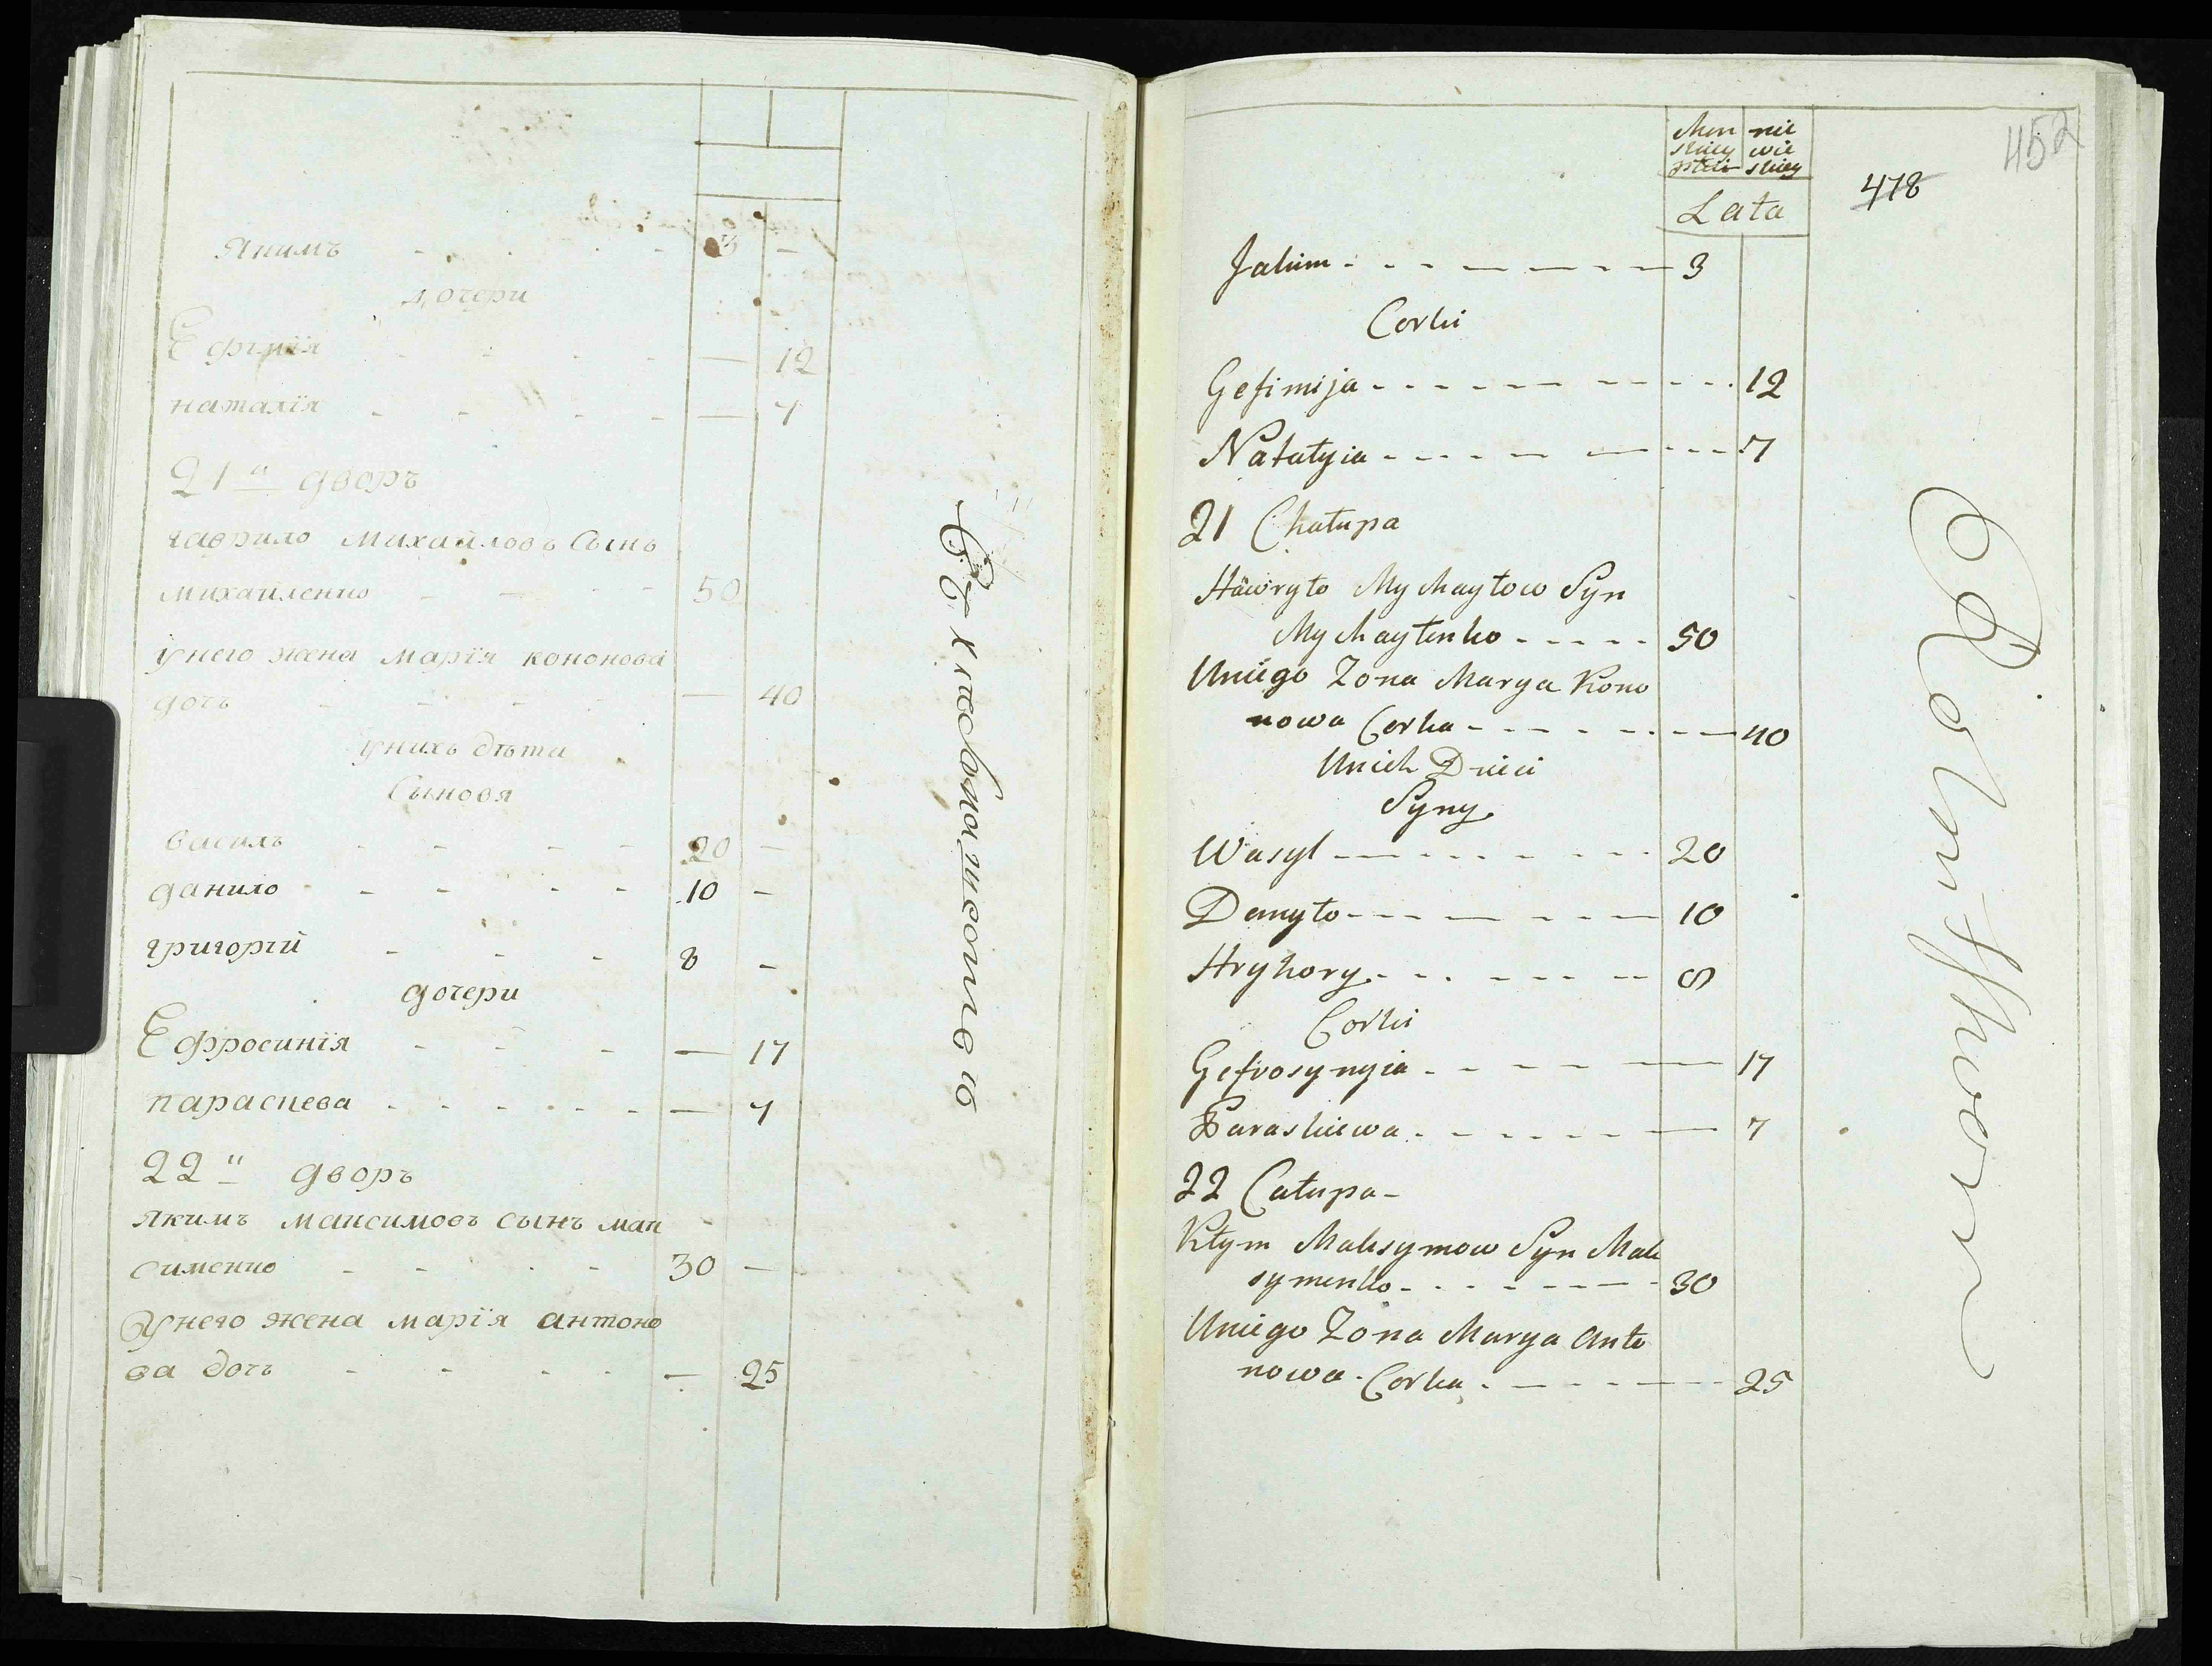 Якимъ - - - - 3 -
дочери
Ефимія - - - - 12
наталія - - - - 7
21й дворъ
гаврило михайловъ сынъ
михайленко - - - 50
унего жена марія кононова
дочь - - - - 40
унихъ дѣти
сыновя
василь - - - - 20 -
данило - - - - 10 -
григорій - - - 8 -
дочери
Ефросинія - - - - 17
параскева - - - - 7
22й дворъ
якимъ максимовъ сынъ мак
сименко - - - - 30 -
Унего жена марія антоно
ва дочь - - - - 25
452
478
Men nie
skiey wie
płci skiey
Lata
Jakim - - - - 3
Corki
Gefimija - - - - 12
Natałyia - - - - 7
21 Chałupa
Hawryło Mychayłow Syn
Mychayłenko - - - - 50
Uniego Zona Marya Kono
nowa Corka - - - - 40
Unich Dzieci
Syny
Wasyl - - - - 20
Danyło - - - - 10
Hryhory - - - - 8
Corki
Gefrosynyia - - - - 17
Paraskiewa - - - - 7
22 Catupa -
Kłym Maksymow Syn Mak
symenko - - - - 30
Uniego Zona Marya Anto
nowa Corka - - - - 25